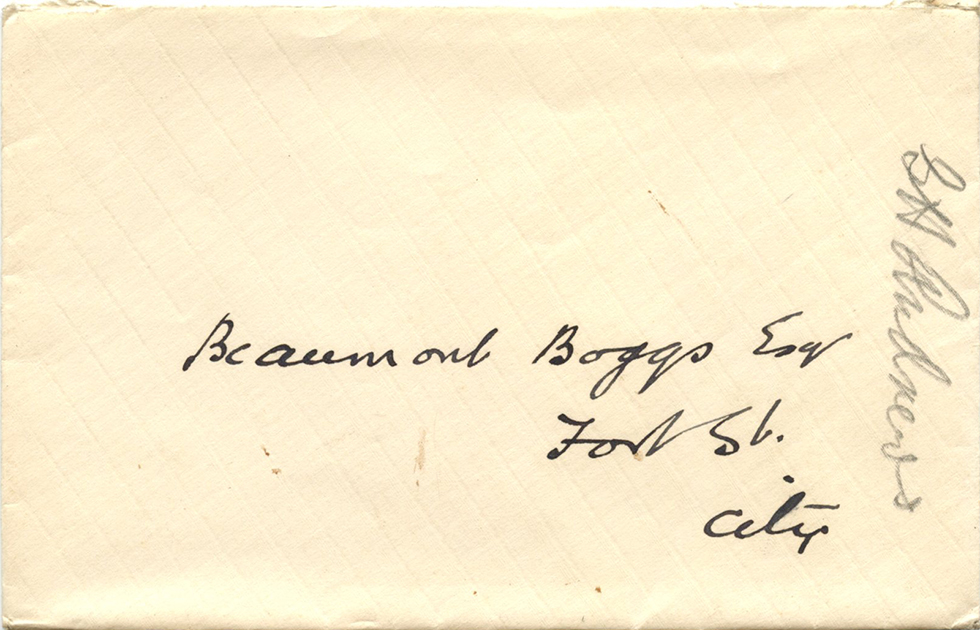 Beaumont Boggs Esqr
Fort St.
City
G H Andrews